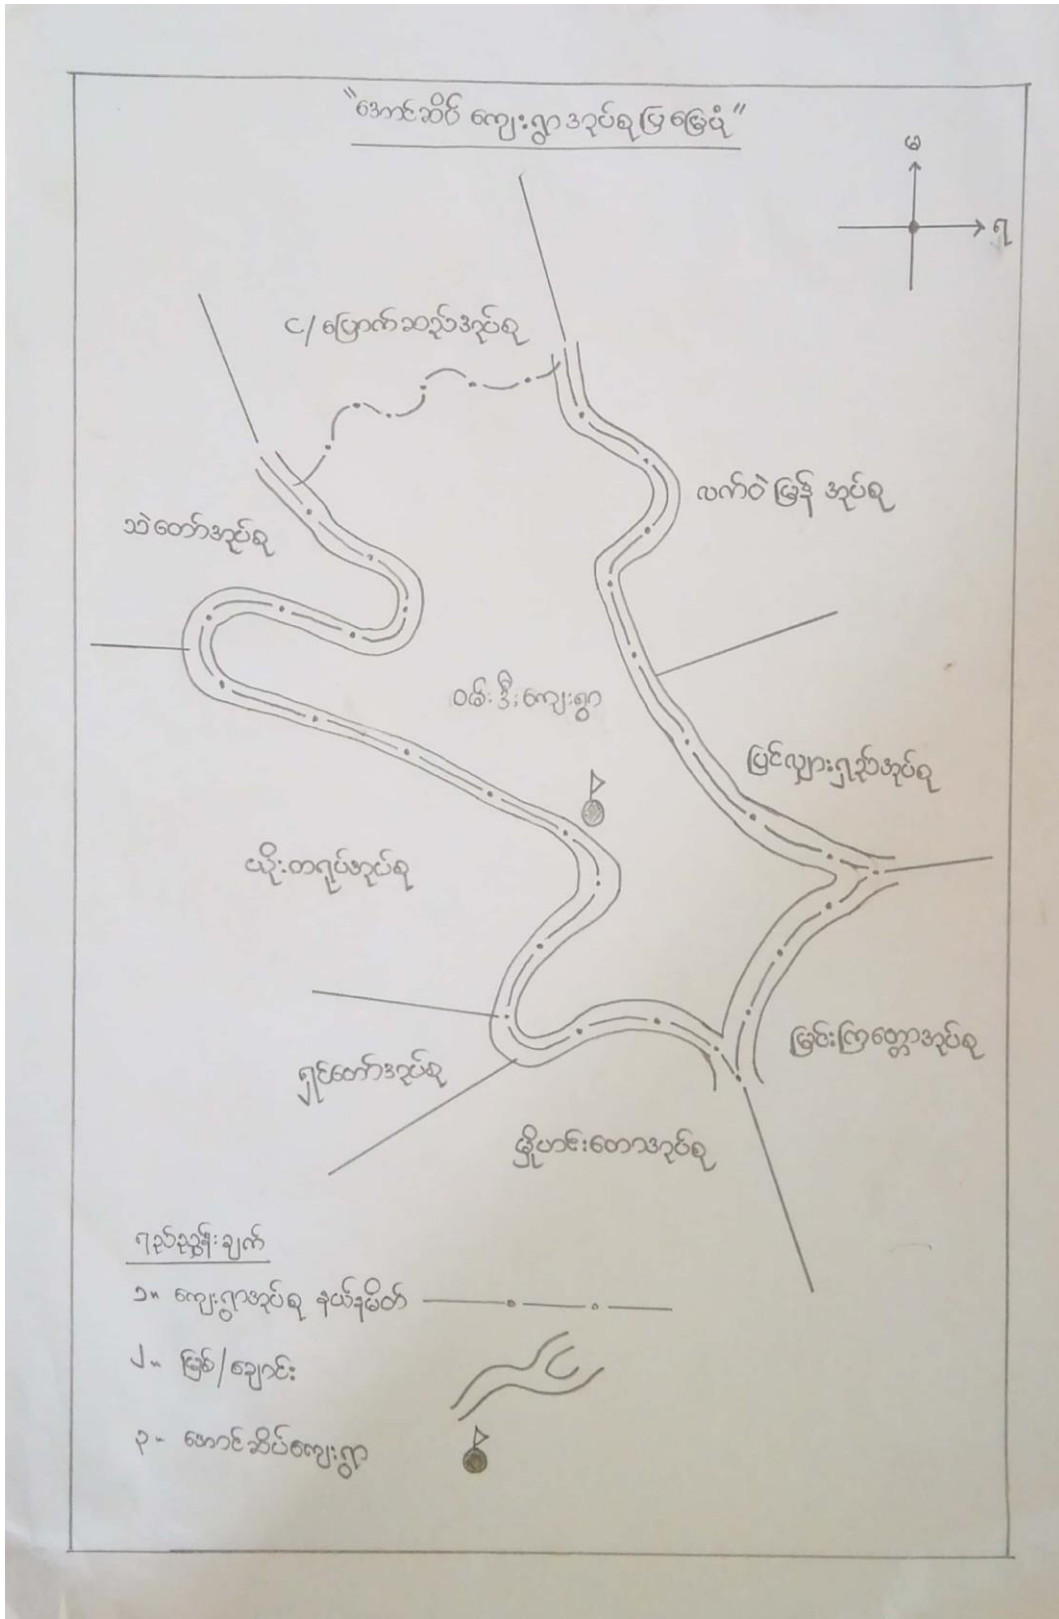 "အောင်ဆိပ် ကျေးရွာအုပ်စုပြ မြေပုံ"
မ
ရ
င/မြောက်ဆည်အုပ်စု
လက်ဝဲမြန် အုပ်စု
သဲတော်အုပ်စု
ဝမ်းဒီးကျေးရွာ
ပြင်လျှားရှည်အုပ်စု
ယိုးတရုပ်အုပ်စု
မြင်းကြတ္တောအုပ်စု
ရှင်တော်အုပ်စု
မှိုဟင်းတောအုပ်စု
ရည်ညွှန်းချက်
၁။ ကျေးရွာအုပ်စု နယ်နမိတ်
၂။ မြစ်/ချောင်း
၃။ အောင်ဆိပ်ကျေးရွာ